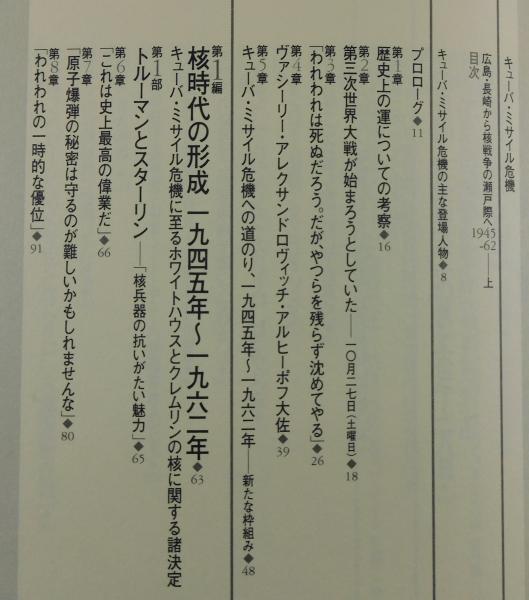 キューバ・ミサイル危機
広島・長崎から核戦争の瀬戸際へ 1945-62——上
目次
キューバ・ミサイル危機の主な登場人物◆8
プロローグ◆11
第1章
歴史上の運についての考察◆16
第2章
第三次世界大戦が始まろうとしていた——一〇月二七日(土曜日)◆18
第3章
「われわれは死ぬだろう。だが、やつらを残らず沈めてやる」◆26
第4章
ヴァシーリー・アレクサンドロヴィッチ・アルヒーポフ大佐◆39
第5章
キューバ・ミサイル危機への道のり、一九四五年〜一九六二年——新たな枠組み◆48
第1編
核時代の形成 一九四五年〜一九六二年◆63
キューバ・ミサイル危機に至るホワイトハウスとクレムリンの核に関する諸決定
第1部
トルーマンとスターリン——「核兵器の抗いがたい魅力」◆65
第6章
「これは史上最高の偉業だ」◆66
第7章
「原子爆弾の秘密は守るのが難しいかもしれませんな」◆80
第8章
「われわれの一時的な優位」◆91